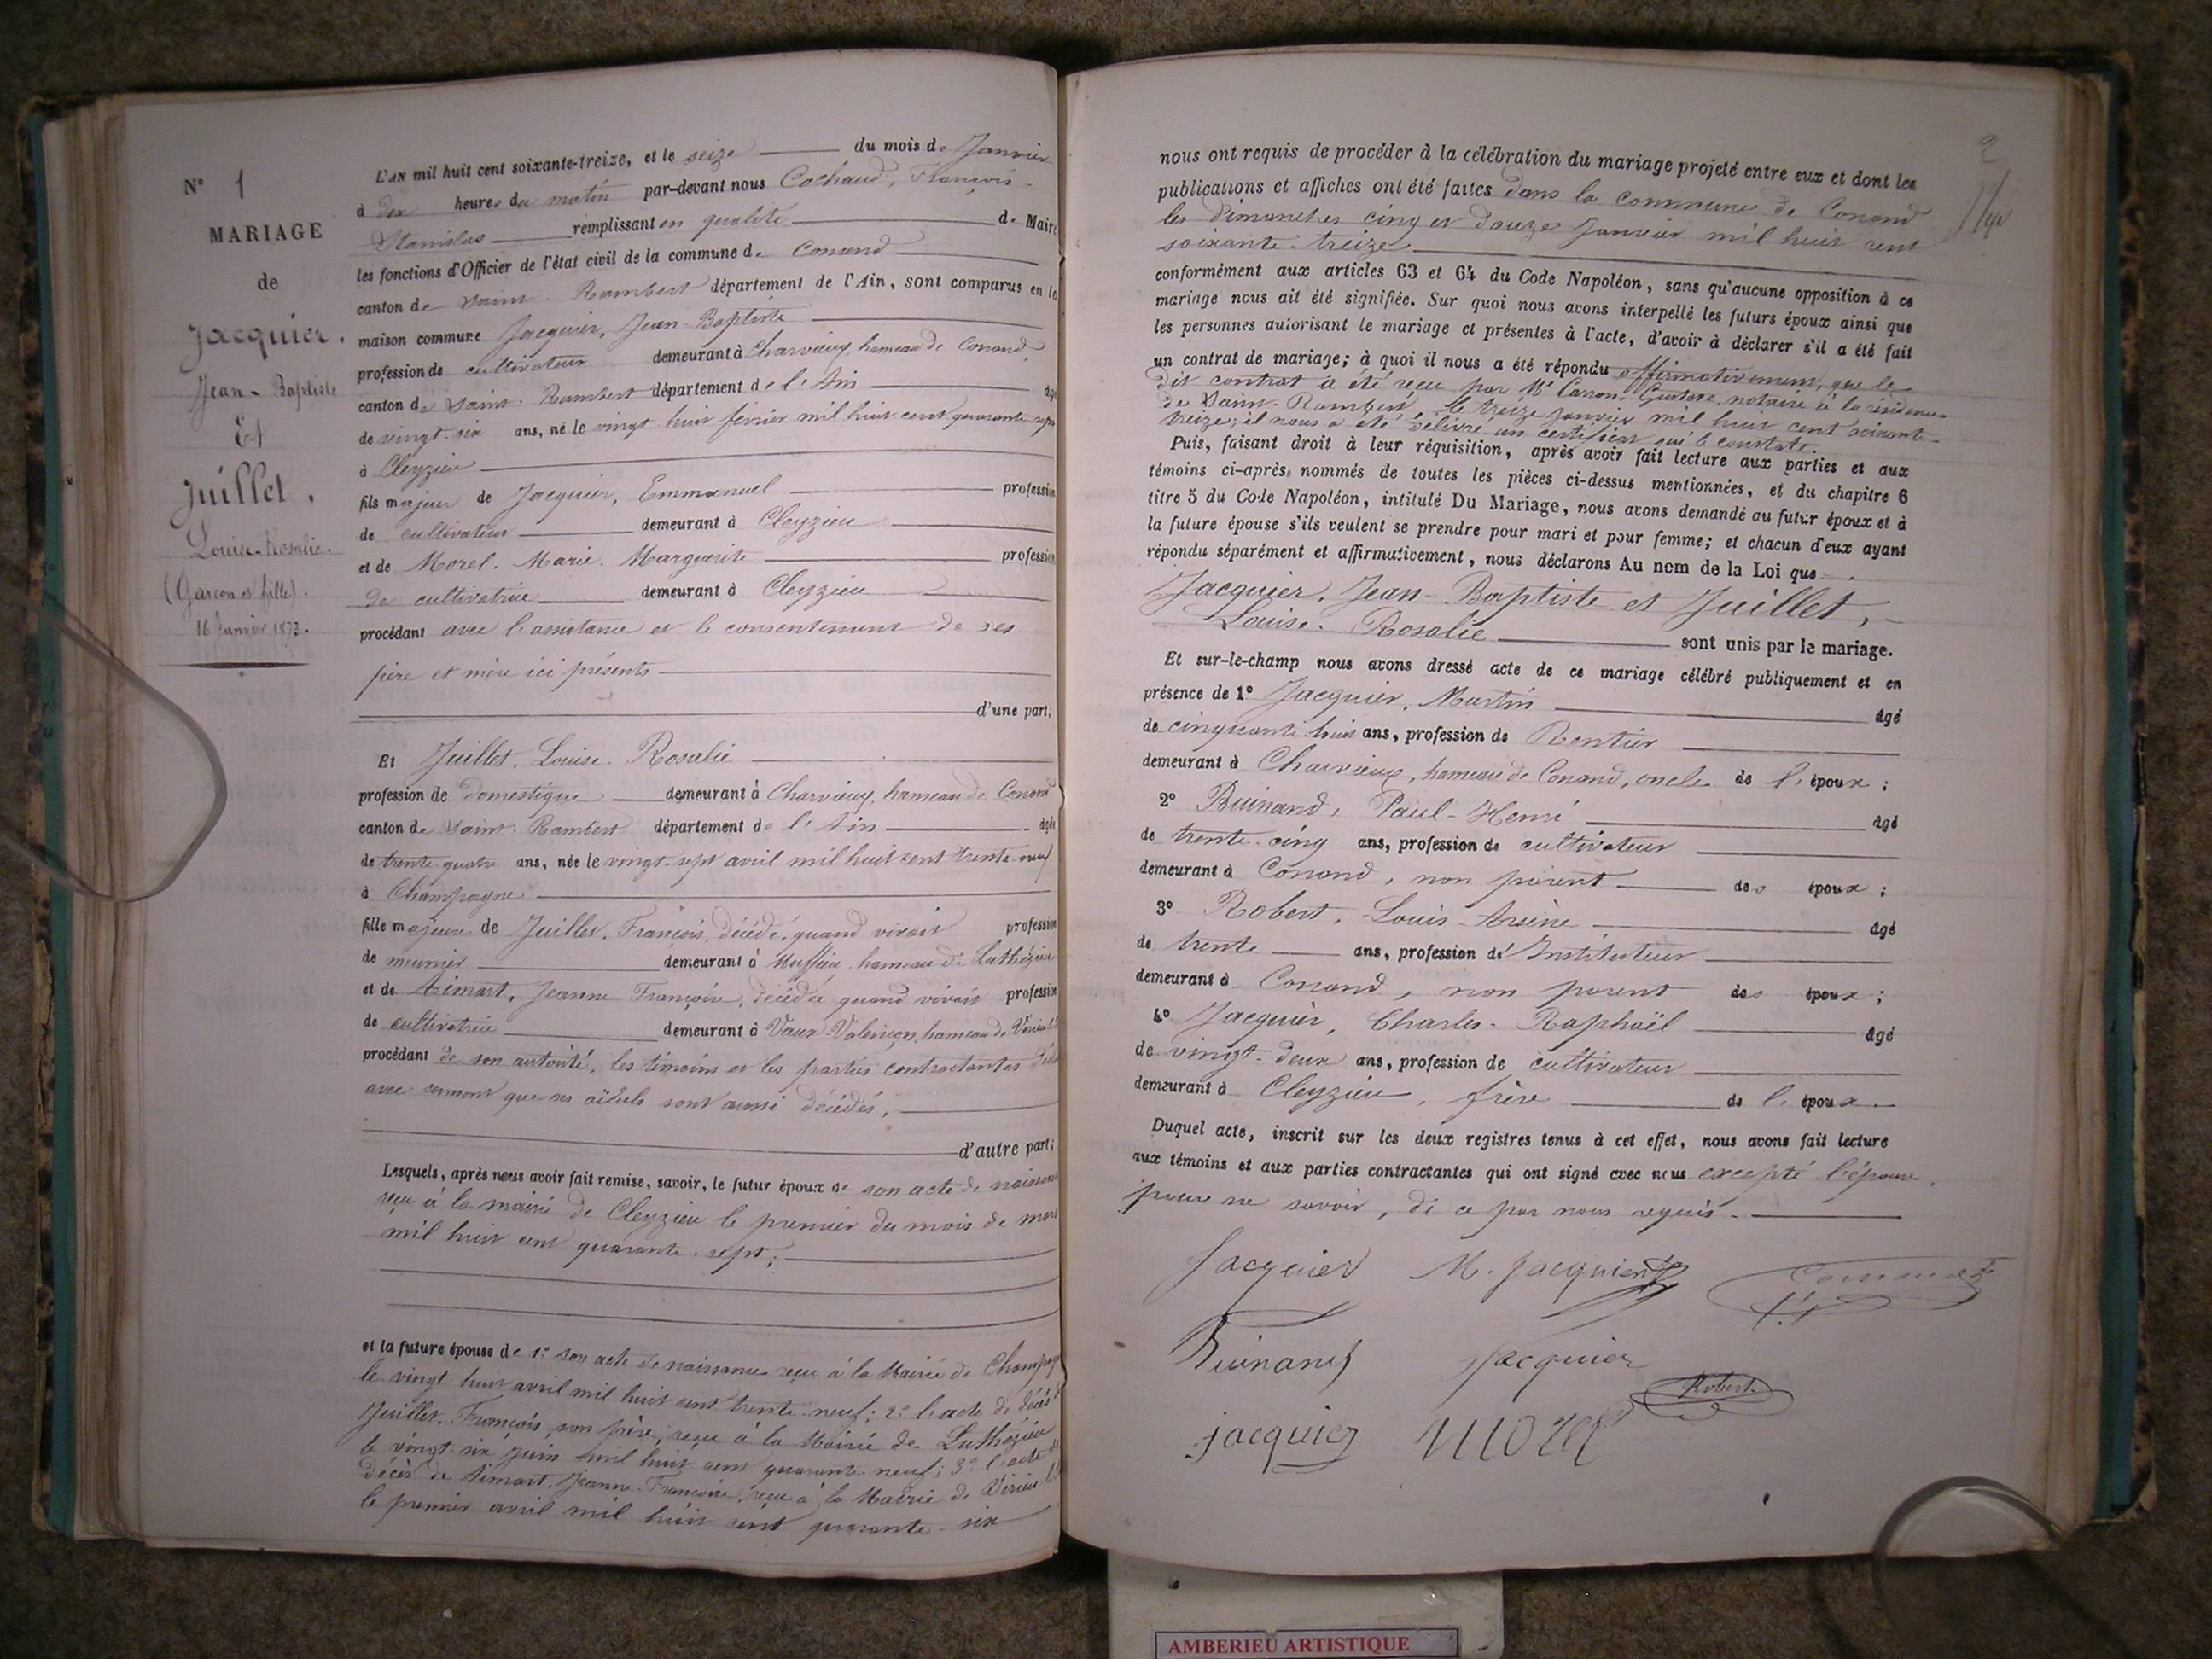 N° 1
MARIAGE
de
Jacquier,
Jean-Baptiste
Et
Juillet,
Louise-Rosalie.
(Garçon et fille).
16 Janvier 1873.
L'AN mil huit cent soixante-treize, et le seize du mois de Janvier
à dix heures du matin par-devant nous Cochaud, François-
Stanislas remplissant en qualité de Maire
les fonctions d'Officier de l'état civil de la commune de Conand
canton de Saint-Rambert département de l'Ain, sont comparus en la
maison commune Jacquier, Jean-Baptiste
profession de cultivateur demeurant à Charvieux, hameau de Conand,
canton de Saint-Rambert département de l'Ain âgé
de vingt-six ans, né le vingt-huit février mil huit cent quarante-sept
à Cleyzieu
fils majeur de Jacquier, Emmanuel profession
de cultivateur demeurant à Cleyzieu
et de Morel, Marie-Marguerite profession
de cultivatrice demeurant à Cleyzieu
procédant avec l'assistance et le consentement de ses
père et mère ici présents
d'une part;
Et Juillet, Louise-Rosalie
profession de domestique demeurant à Charvieux, hameau de Conand
canton de Saint-Rambert département de l'Ain âgée
de trente-quatre ans, née le vingt-sept avril mil huit cent trente-neuf
à Champagne
fille majeure de Juillet, François, décédé, quand vivait profession
de meunier demeurant à Muffieu, hameau de Luthézieu
et de Aimart, Jeanne Françoise, décédée quand vivait profession
de cultivatrice demeurant à Vaux-Valeriçon, hameau de
procédant de son autorité, les témoins et les parties contractantes
avec serment que ses aïeuls sont aussi décédés,
d'autre part;
Lesquels, après nous avoir fait remise, savoir, le futur époux de son acte de naissance
reçu à la mairie de Cleyzieu le premier du mois de mars
mil huit cent quarante-sept;
et la future épouse de 1° son acte de naissance reçu à la Mairie de Champagne
le vingt-huit avril mil huit cent trente-neuf; 2° l'acte de décès
Juillet, François, son père, reçu à la Mairie de Luthézieu
le vingt-six juin mil huit cent quarante-neuf; 3° l'acte de
décès de Aimart, Jeanne-Françoise, reçu à la Mairie de Virieu
le premier avril mil huit cent quarante-six
2
nous ont requis de procéder à la célébration du mariage projeté entre eux et dont les
publications et affiches ont été faites dans la commune de Conand
les dimanches cinq et douze Janvier mil huit cent
soixante-treize
conformément aux articles 63 et 64 du Code Napoléon, sans qu'aucune opposition à ce
mariage nous ait été signifiée. Sur quoi nous avons interpellé les futurs époux ainsi que
les personnes autorisant le mariage et présentes à l'acte, d'avoir à déclarer s'il a été fait
un contrat de mariage; à quoi il nous a été répondu affirmativement, que le
dit contrat a été reçu par Me Carron, Gustave, notaire à la résidence
de Saint-Rambert, le treize janvier mil huit cent soixante-
treize; il nous a été délivré un certificat qui le constate.
Puis, faisant droit à leur réquisition, après avoir fait lecture aux parties et aux
témoins ci-après nommés de toutes les pièces ci-dessus mentionnées, et du chapitre 6
titre 5 du Code Napoléon, intitulé Du Mariage, nous avons demandé au futur époux et à
la future épouse s'ils veulent se prendre pour mari et pour femme; et chacun d'eux ayant
répondu séparément et affirmativement, nous déclarons Au nom de la Loi que
Jacquier, Jean-Baptiste et Juillet,
Louise-Rosalie sont unis par le mariage.
Et sur-le-champ nous avons dressé acte de ce mariage célébré publiquement et en
présence de 1° Jacquier, Martin âgé
de cinquante-huit ans, profession de Rentier
demeurant à Charvieux, hameau de Conand, oncle de l'époux;
2° Buinand, Paul-Henri âgé
de trente-cinq ans, profession de cultivateur
demeurant à Conand, non parent des époux;
3° Robert, Louis-Arsène âgé
de trente ans, profession d'Instituteur
demeurant à Conand, non parent des époux;
4° Jacquier, Charles-Raphaël âgé
de vingt-deux ans, profession de cultivateur
demeurant à Cleyzieu, frère de l'époux.
Duquel acte, inscrit sur les deux registres tenus à cet effet, nous avons fait lecture
aux témoins et aux parties contractantes qui ont signé avec nous excepté l'épouse,
pour ne savoir, de ce par nous requis.
Jacquier M. Jacquier
Buinand Jacquier
Robert
jacquier morel
AMBERIEU ARTISTIQUE